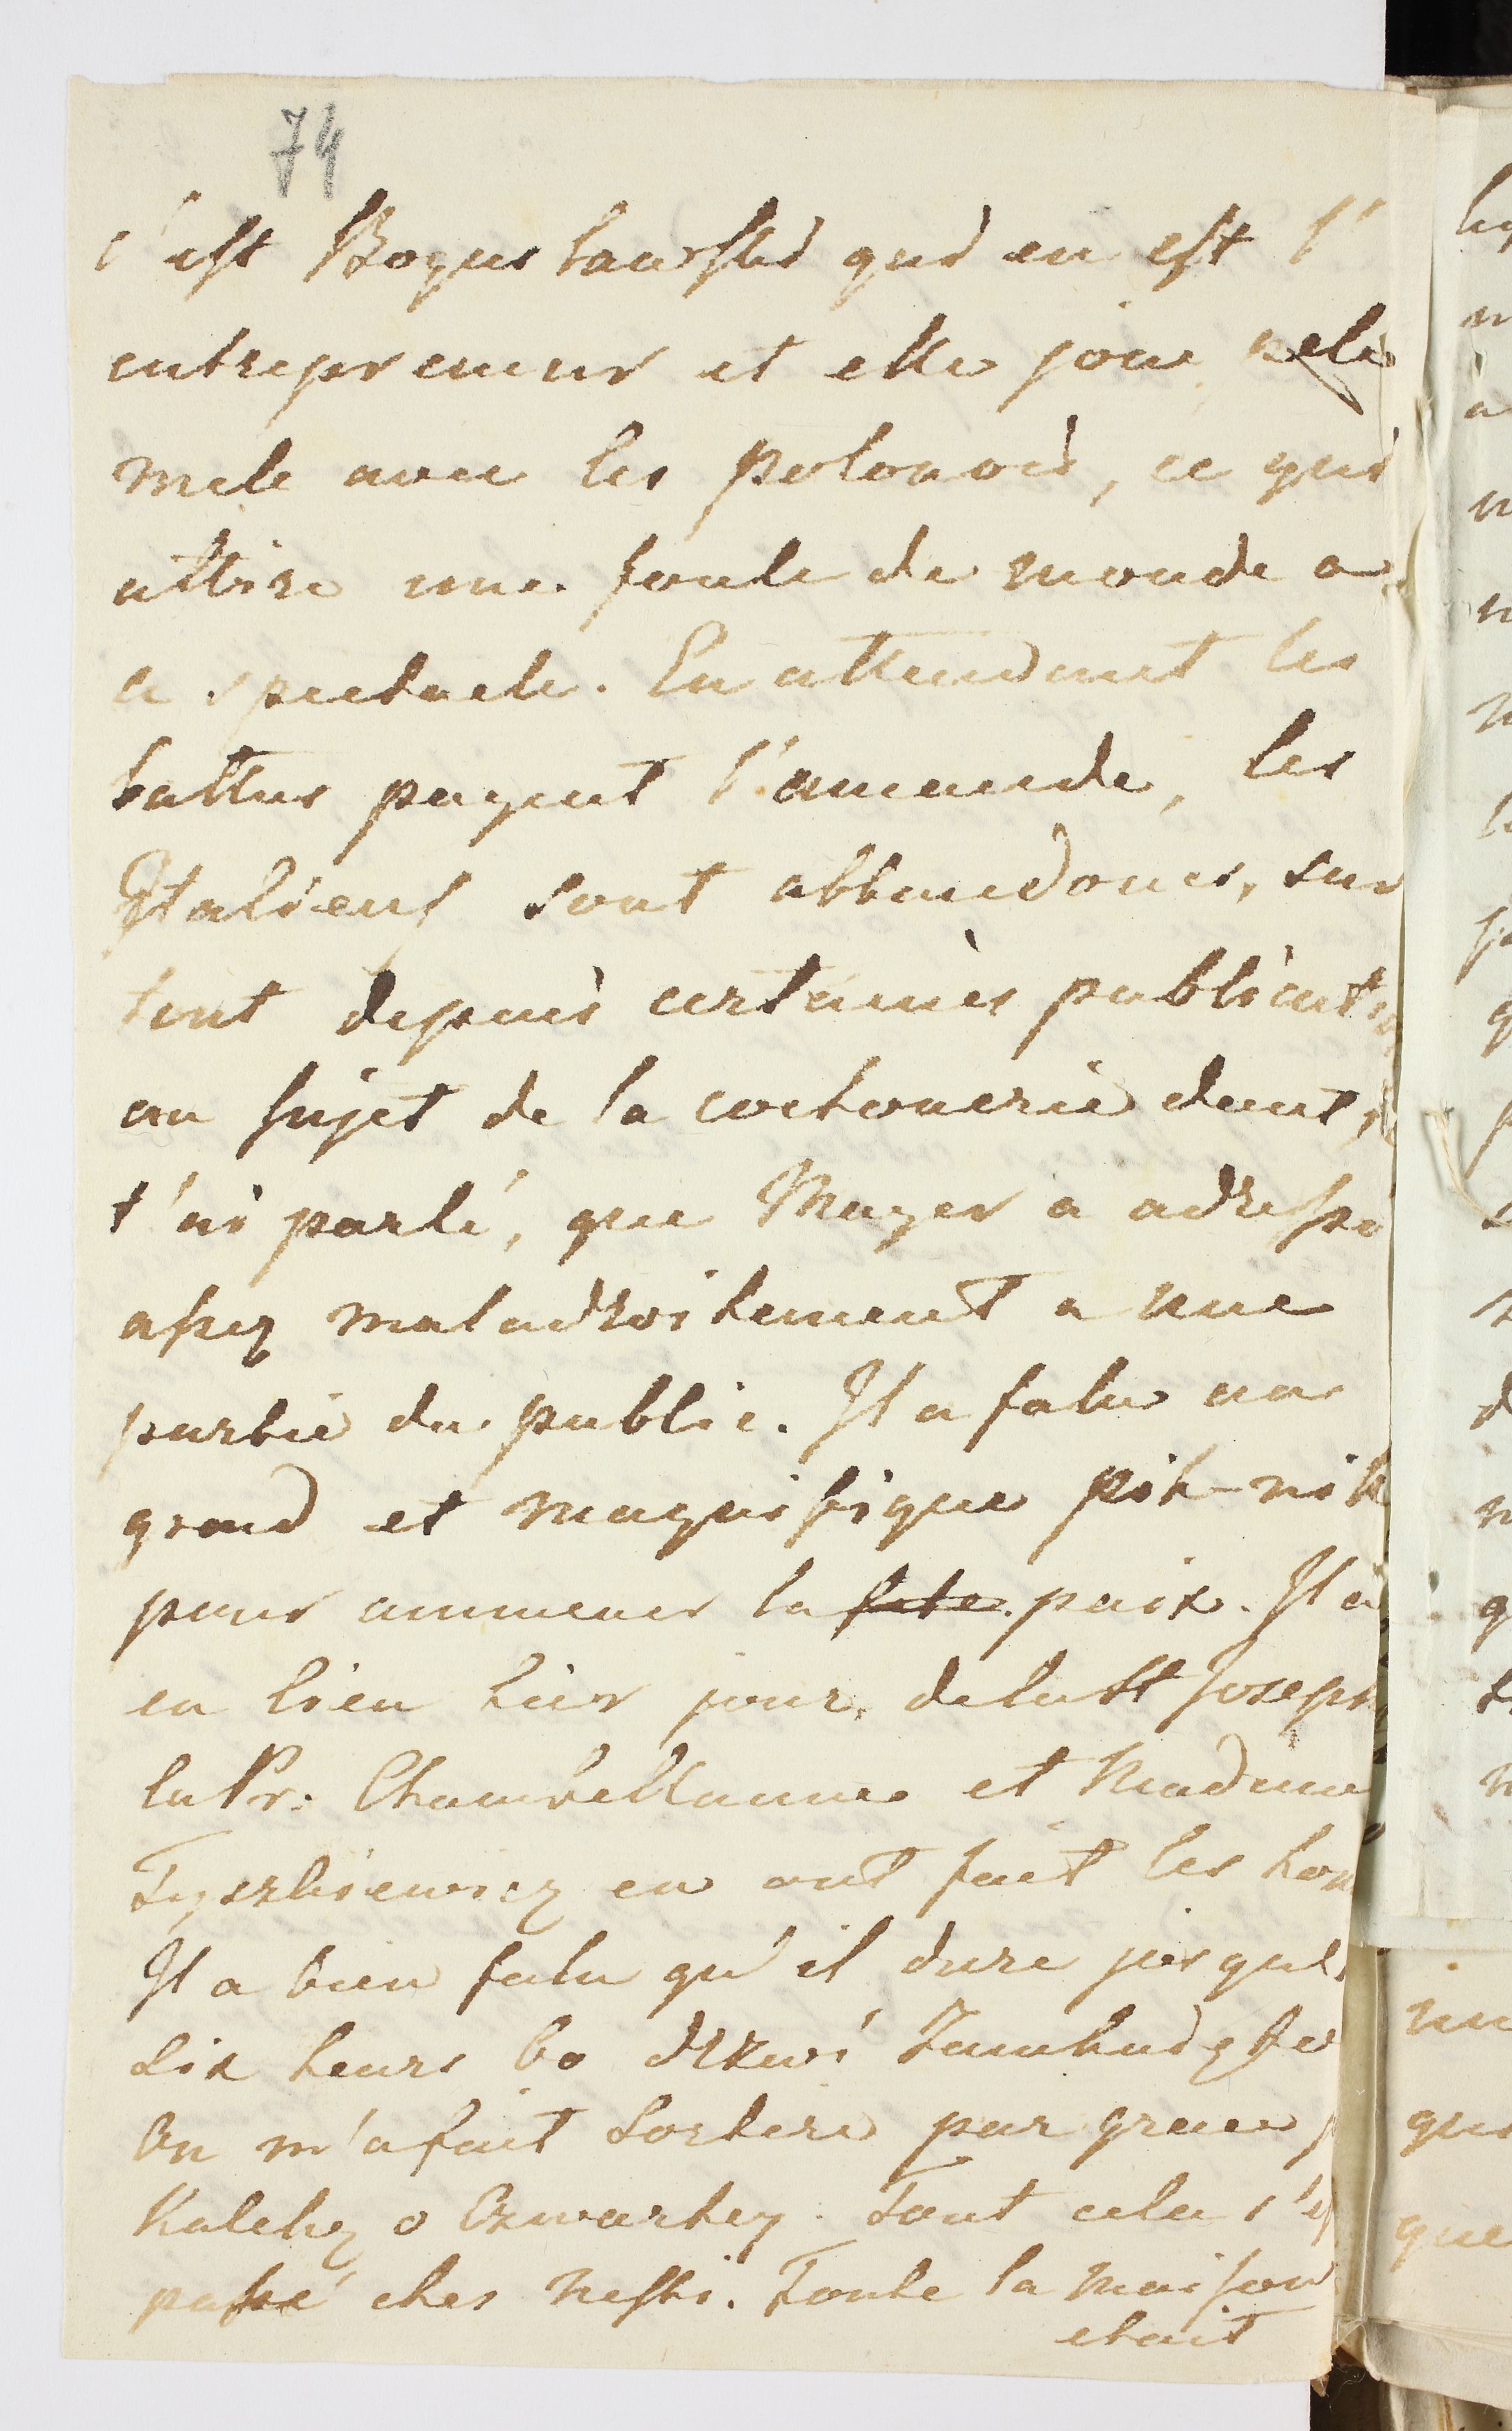 74
c'est Boguslawski qui en est l'
entrepreneur et elle joue pele
mele avec les polonois, ce qui
attire une foule de monde a
ce spectacle. En attendant les
battus payent l'amende, les
Italiens sont abbandonés, sur
tout depuis certaines publicatio
au sujet de la cochonerie dont
t'ai parlé, que Mayer a adressé
assez maladroitement a une
partie du public. Il a falu un
grand et magnifique pik-nik
pour ammener la fete paix. Il a
eu lieu hier jour de la St Joseph
la Pr: Chambellanne et Madame
Tyszkiewicz en ont fait les hon
Il a bien falu qu'il dure jusqu'a
dix heurs bo drzwi
On m'a fait sortir par grace
o Czwartey. Tout cela s'est
passé ches Neski. Toute la maison
etait